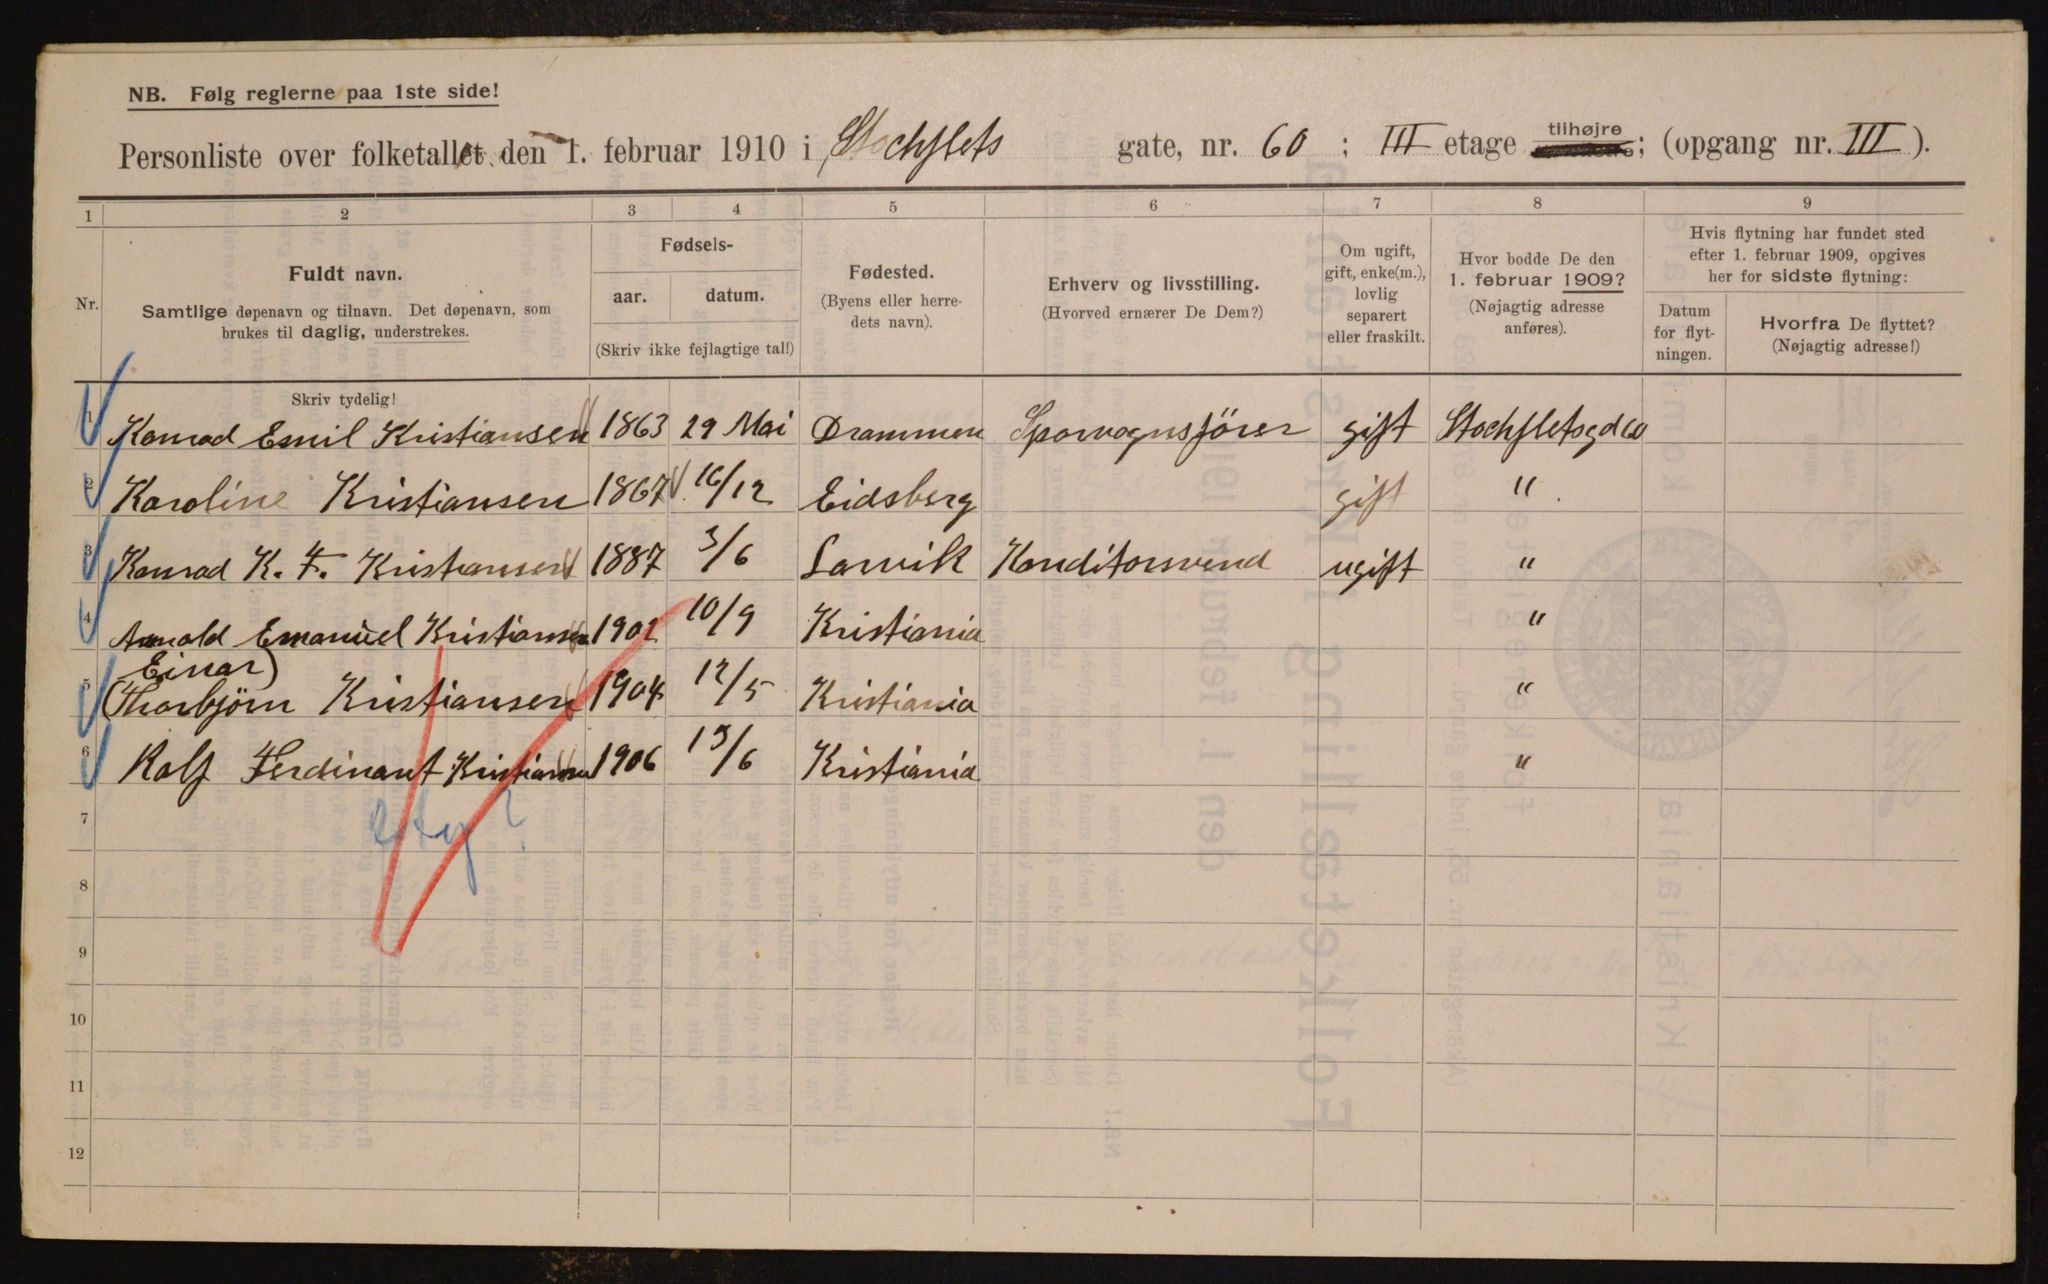 NB. Følg reglerne paa 1ste side!
Personliste over folketallet den 1. februar 1910 i Stochflets gate, nr. 60 ; III etage tilhøjre ; (opgang nr. III ).
1 2 3 4 5 6 7 8 9
Nr.
Fuldt navn.
Samtlige døpenavn og tilnavn. Det døpenavn, som
brukes til daglig, understrekes.
Skriv tydelig!
Fødsels-
aar. datum.
(Skriv ikke fejlagtige tal!)
Fødested.
(Byens eller herre-
dets navn).
Erhverv og livsstilling.
(Hvorved ernærer De Dem?)
Om ugift,
gift, enke(m.),
lovlig
separert
eller fraskilt.
Hvor bodde De den
1. februar 1909?
(Nøjagtig adresse
anføres).
Hvis flytning har fundet sted
efter 1. februar 1909, opgives
her for sidste flytning:
Datum
for flyt-
ningen.
Hvorfra De flyttet?
(Nøjagtig adresse!)
1 Konrad Emil Kristiansen 1863 29 Mai Drammen Sporvognsfører gift Stochfletsgd 60
2 Karoline Kristiansen 1867 16/12 Eidsberg gift "
3 Konrad K. F. Kristiansen 1887 3/6 Larvik Konditorsvend ugift "
4 Arnold Emanuel Kristiansen 1902 10/9 Kristiania "
Einar)
5 (Thorbjörn Kristiansen 1904 12/5 Kristiania "
6 Rolf Ferdinant Kristiansen 1906 13/6 Kristiania "
7
8
9
10
11
12